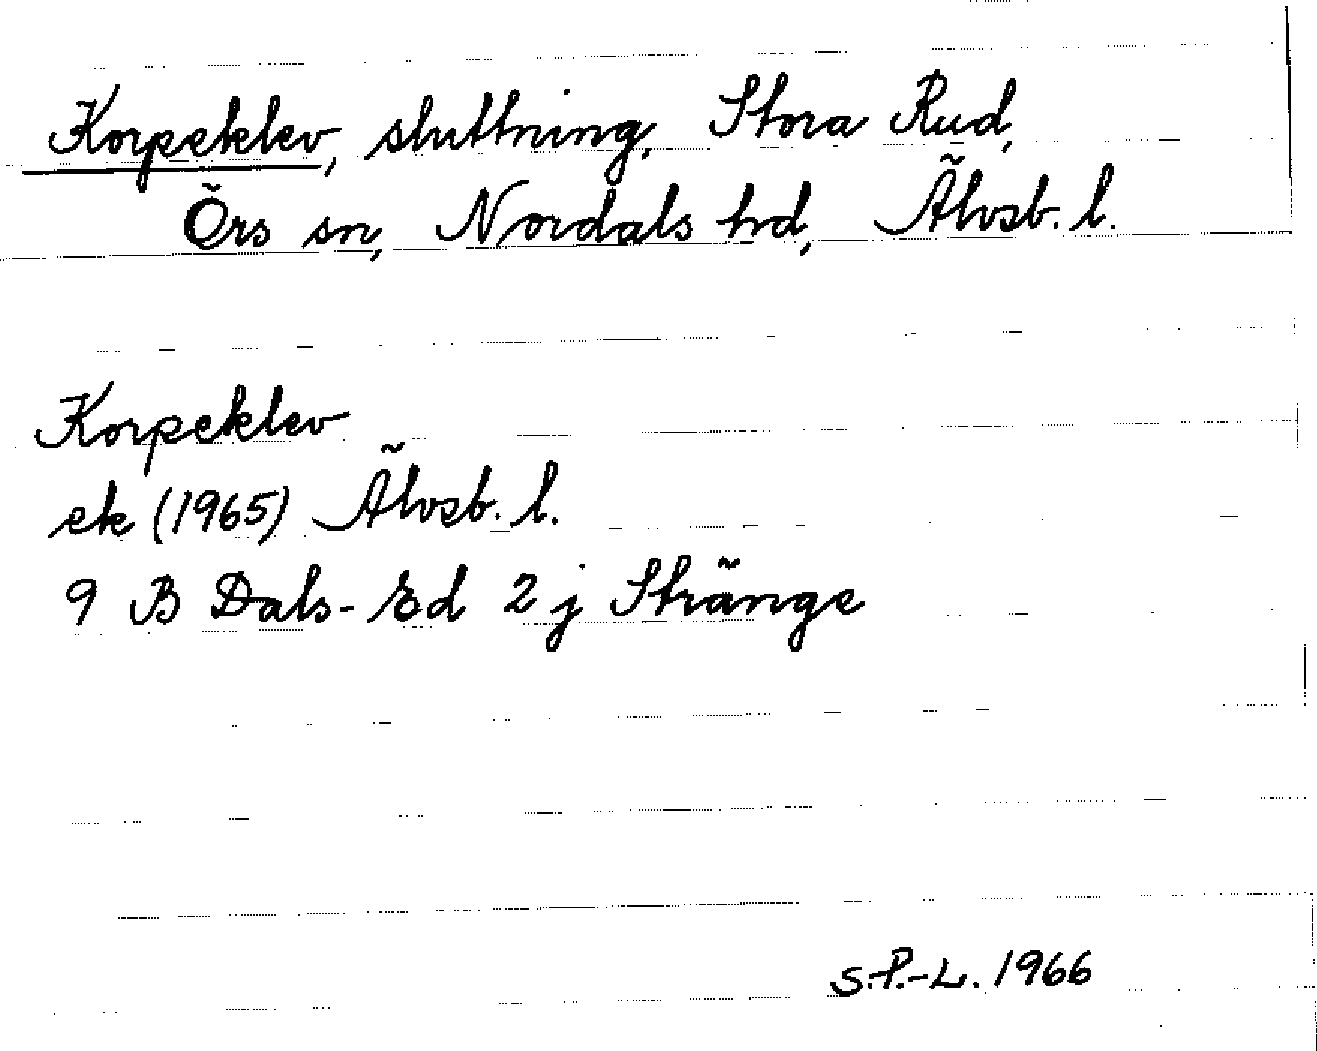 Korpeklev, sluttning, Stora Rud,
Örs sn, Nordals hd, Älvsb. l.
Korpeklev
ek (1965) Älvsb. l.
9 B Dals-Ed 2 j Stränge
S.P.-L. 1966